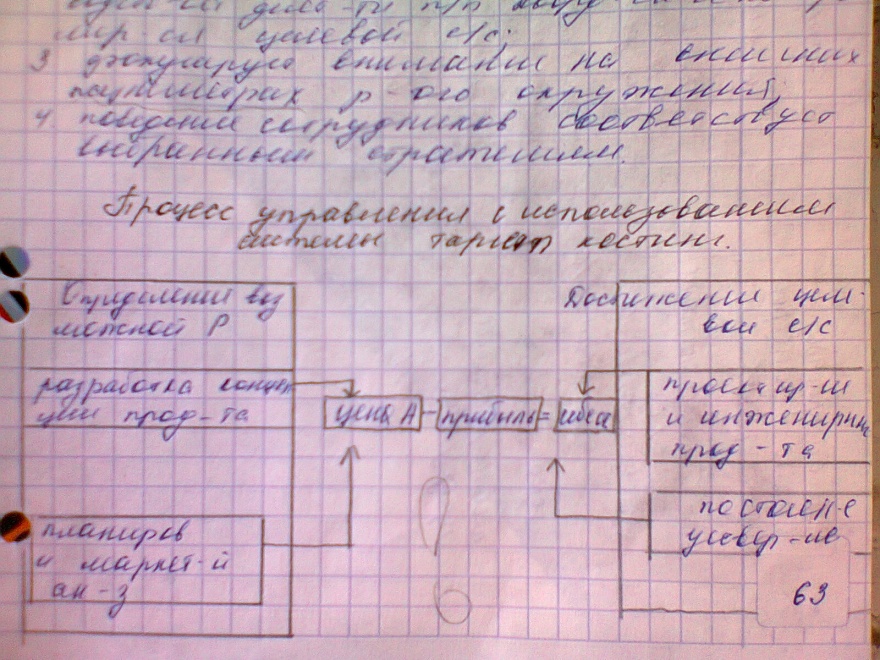 мир-ся целевой с/с;
3 фокусирует внимание на внешних
параметрах р-ого окружения;
4. поведение сотрудников соответствует
выбранным стратегиям.
Процесс управления с использованием
системы таргет костинг.
Определение воз
можной Р
разработка концеп
ции прод-та
планиров
и маркет-й
ан-з
цена А - прибыль =
Достижение целе-
вой с/с
и инжениринг
прод-та
постоян-е
усовер-ие
63